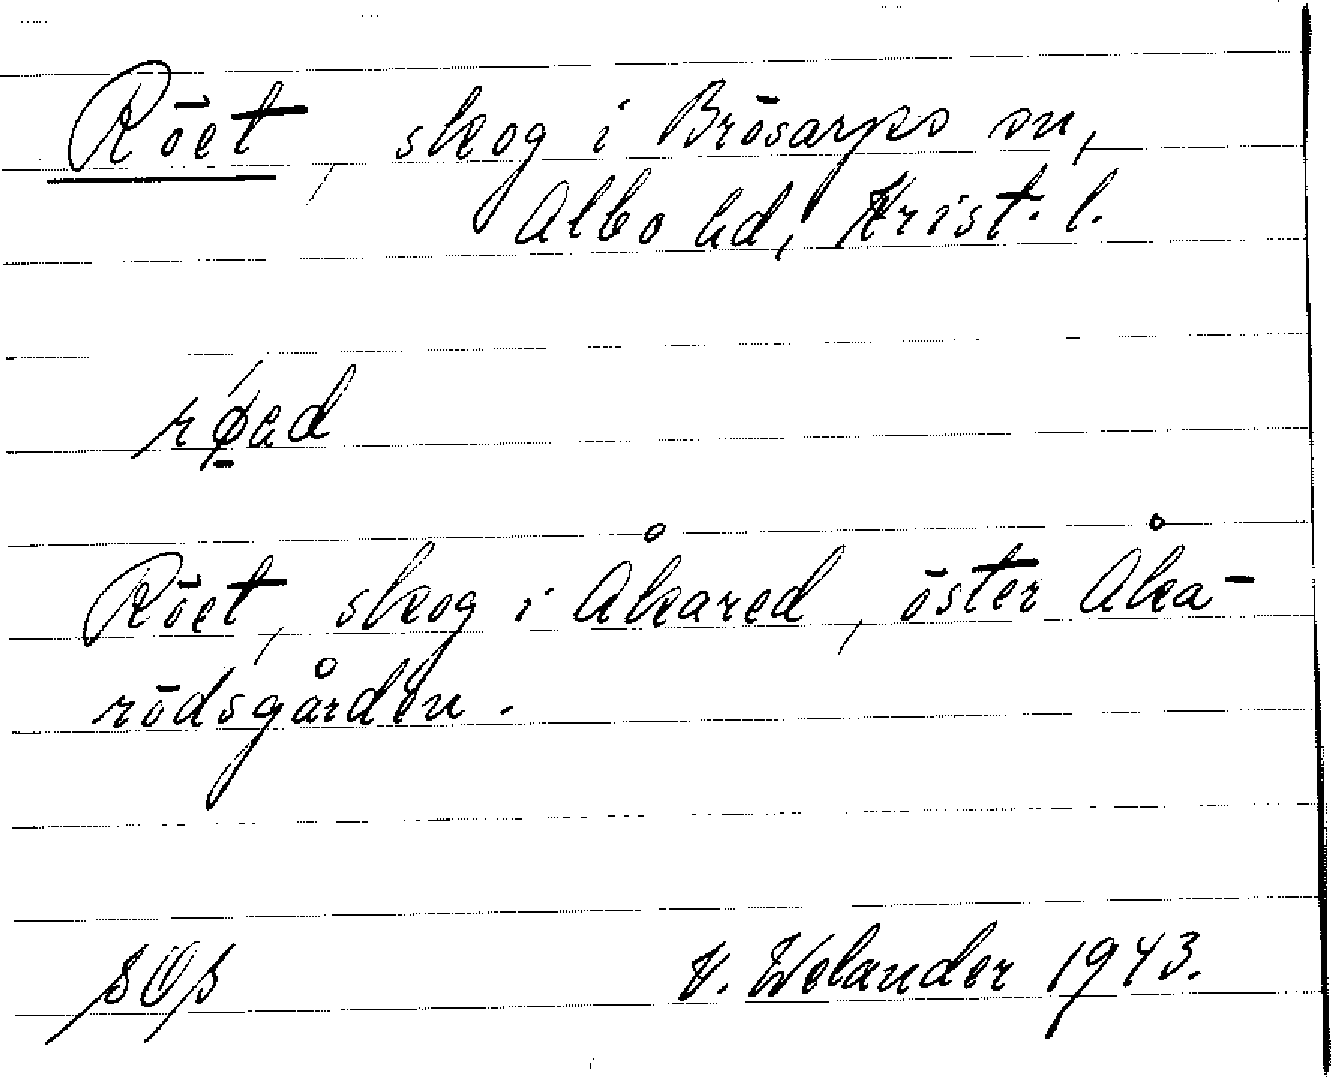 Röet, skog i Brösarps sn,
Albo hd, Krist. l.
røəd
Röet, skog i Åkared, öster Åka-
rödsgården.
V. Welander 1943.